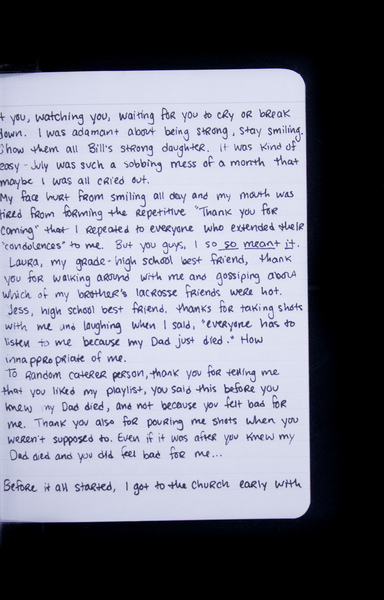 t you, watching you, waiting for you to cry or break
down. I was adamant about being strong, stay smiling.
Show them all Bill's strong daughter. it was kind of
easy - July was such a sobbing mess of a month that
maybe I was all cried out.
My face hurt from smiling all day and my mouth was
tired from forming the repetitive "Thank you for
coming" that I repeated to everyone who extended their
"condolences" to me. But you guys, I so so meant it.
Laura, my grade-high school best friend, thank
you for walking around with me and gossiping about
which of my brother's lacrosse friends were hot.
Jess, high school best friend. thanks for taking shots
with me and laughing when I said, "everyone has to
listen to me because my Dad just died." How
innappropriate of me.
To random caterer person, thank you for telling me
that you liked my playlist, you said this before you
knew my Dad died, and not because you felt bad for
me. Thank you also for pouring me shots when you
weren't supposed to. Even if it was after you knew my
Dad died and you did feel bad for me...
Before it all started, I got to the church early with